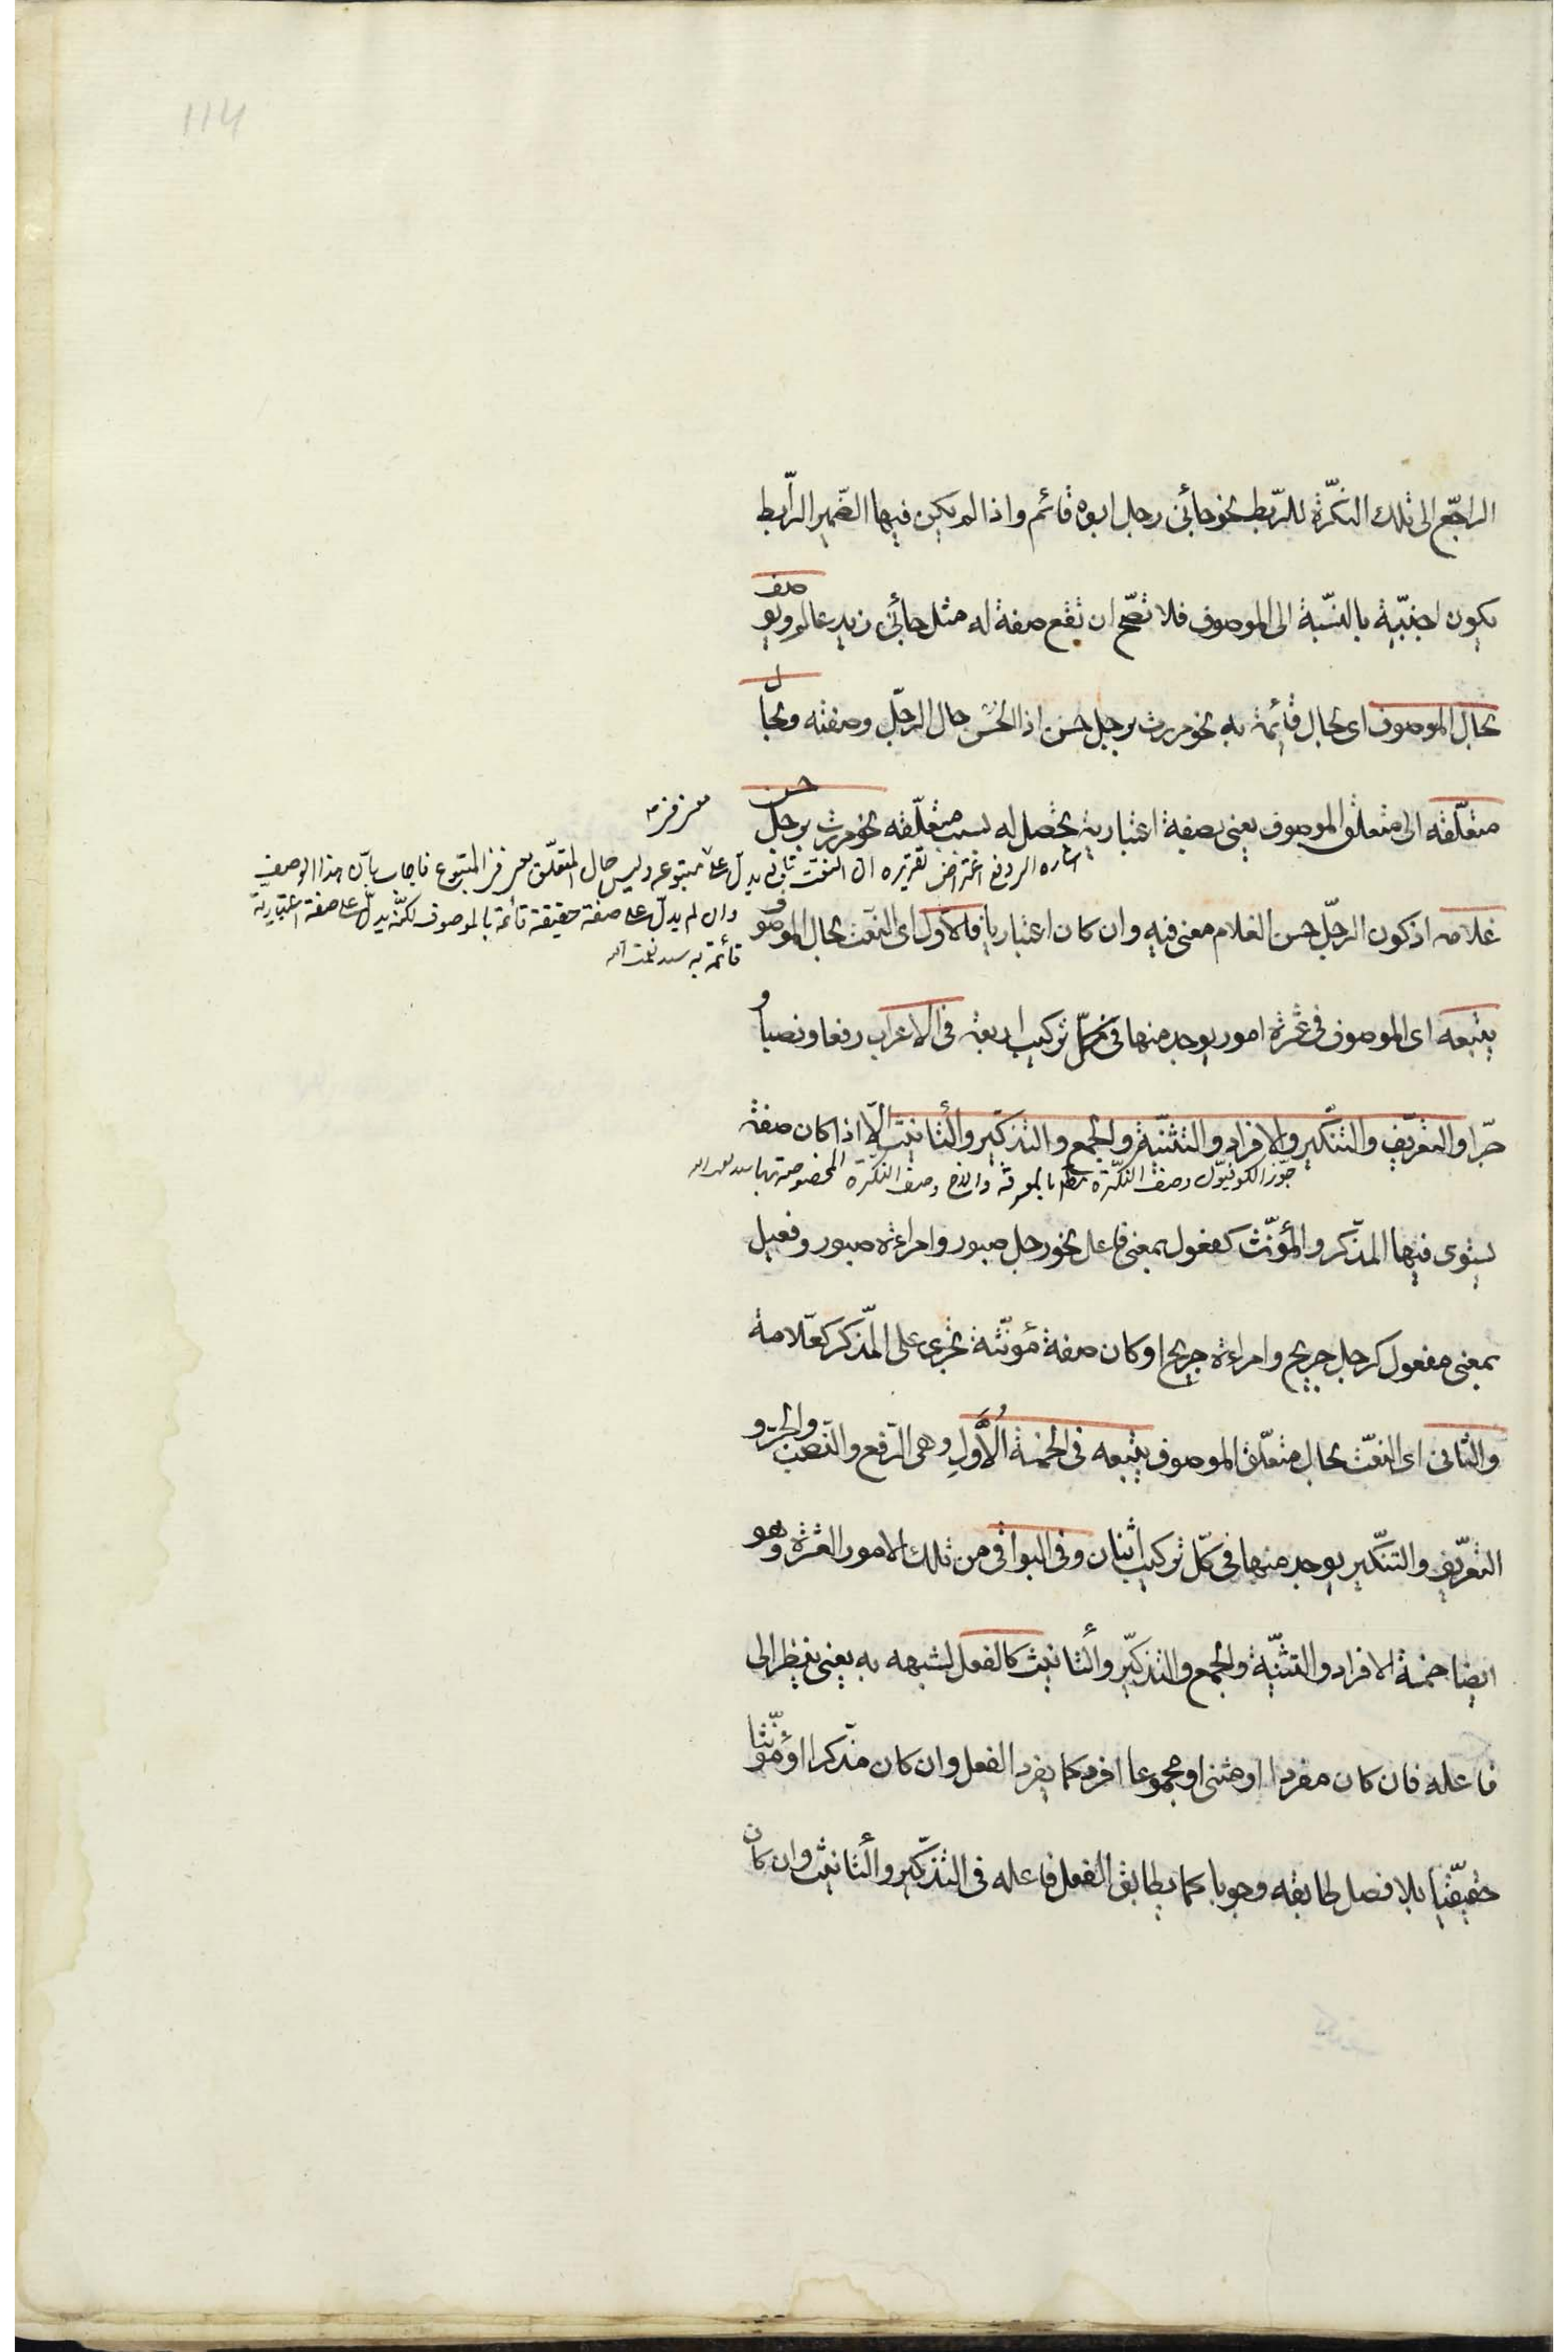 114
الراجع الى تلك النكرة للربط نحو جائنى رجل ابوه قائم واذا لم يكن فيها الضمير الرابط
يكون اجنبية بالنسبة الى الموصوف فلا تصح ان تقع صفة له مثل جائنى زيد عالم ويوصف
بحال الموصوف اى بحال قائمة به نحو مررت برجل حسن اذ الحسن حال الرجل وصفته وبحال
متعلقه اى متعلق الموصوف يعنى بصفة اعتبارية تحصل له بسبب متعلقه نحو مررت برجل حسن
اشاره الى دفع اعتراض تقريره ان النعت تابع يدل على متبوعه وليس حال المتعلق فى المتبوع فاجاب بان هذا الوصف
وان لم يدل على صفة حقيقة قائمة بالموصوف لكنه يدل على صفة اعتبارية
قائمة به
غلامه اذ كون الرجل حسن الغلام معنى فيه وان كان اعتباريا فالاول اى النعت بحال الموصوف
يتبعه اى الموصوف فى عشرة امور يوجد منها فى كل تركيب اربعة فى الاعراب رفعا ونصبا و
جرا والتعريف والتنكير والافراد والتثنية والجمع والتذكير والتأنيث الا اذا كان صفة
جوز الكوفيون وصف النكرة بالمعرفة وصف النكرة المخصوصة بها
يستوى فيها المذكر والمؤنث كفعول بمعنى فاعل نحو رجل صبور وامراءة صبور وفعيل
بمعنى مفعول كرجل جريح وامراءة جريح او كان صفة مؤنثة تجرى على المذكر كعلامة
والثانى اى النعت بحال متعلق الموصوف يتبعه فى الخمسة الاول وهى الرفع والنصب والجر و
التعريف والتنكير يوجد منها فى كل تركيب اثنان وفى البواقى من تلك الامور العشرة وهو
ايضا خمسة الافراد والتثنية والجمع والتذكير والتأنيث كالفعل لشبهه به يعنى ينظر الى
فاعله فان كان مفردا او مثنى او مجموعا افرد كما يفرد الفعل وان كان مذكرا او مؤنثا
حقيقيا بلا فصل طابقه وجوبا كما يطابق الفعل فاعله فى التذكير والتأنيث وان كان